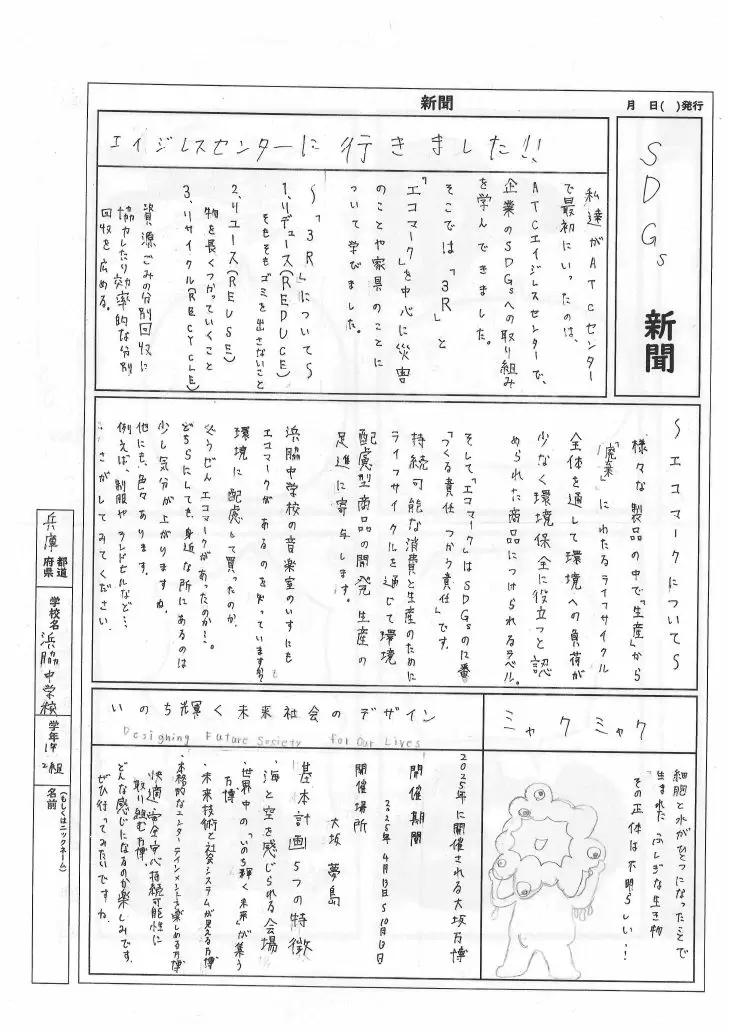 新聞
月 日( )発行
SDGs
新聞
エイジレスセンターに行きました!!
私達がATCセンター
で最初にいったのは、
ATCエイジレスセンターで、
企業のSDGsへの取り組み
を学んできました。
そこでは「3R」と
「エコマーク」を中心に災害
のことや家具のことに
ついて学びました。
〜「3R」について〜
1、リデュース(REDUCE)
そもそもゴミを出さないこと
2、リユース(REUSE)
物を長くつかっていくこと
3、リサイクル(RECYCLE)
資源ごみの分別回収に
協力したり効率的な分別
回収を広める。
〜エコマークについて〜
様々な製品の中で「生産」から
「廃棄」にわたるライフサイクル
全体を通して環境への負荷が
少なく環境保全に役立つと認
められた商品につけられるラベル。
そして「エコマーク」はSDGsの12番
「つくる責任 つかう責任」です。
持続可能な消費と生産のために
ライフサイクルを通じて環境
配慮型商品の開発 生産の
促進に寄与します。
浜脇中学校の音楽室のいすにも
エコマークがあるのを知っていますか?
環境に配慮して買ったのか、
ぐうぜんエコマークがあったのか…。
どちらにしても、身近な所にあるのは
少し気分が上がりますね。
他にも、色々あります。
例えば、制服やランドセルなど…
さがしてみてください。
ミャクミャク
細胞と水がひとつになったことで
生まれた ふしぎな生き物
その正体は不明らしい…!
いのち輝く未来社会のデザイン
Designing Future Society for Our Lives
2025年に開催される大坂万博
開催期間
2025年4月13日〜10月13日
開催場所
大坂 夢島
基本計画 5つの特徴
・海と空を感じられる会場
・世界中の「いのち輝く未来」が集う
万博
・未来技術と社会システムが見える万博
・本格的なエンターテインメントを楽しめる万博
・快適、安全安心、持続可能性に
取り組む万博
どんな感じになるのか楽しみです。
ぜひ行ってみたいですね。
兵庫
都道
府県
学校名
浜脇中学校
学年
1年
2組
名前
(もしくはニックネーム)